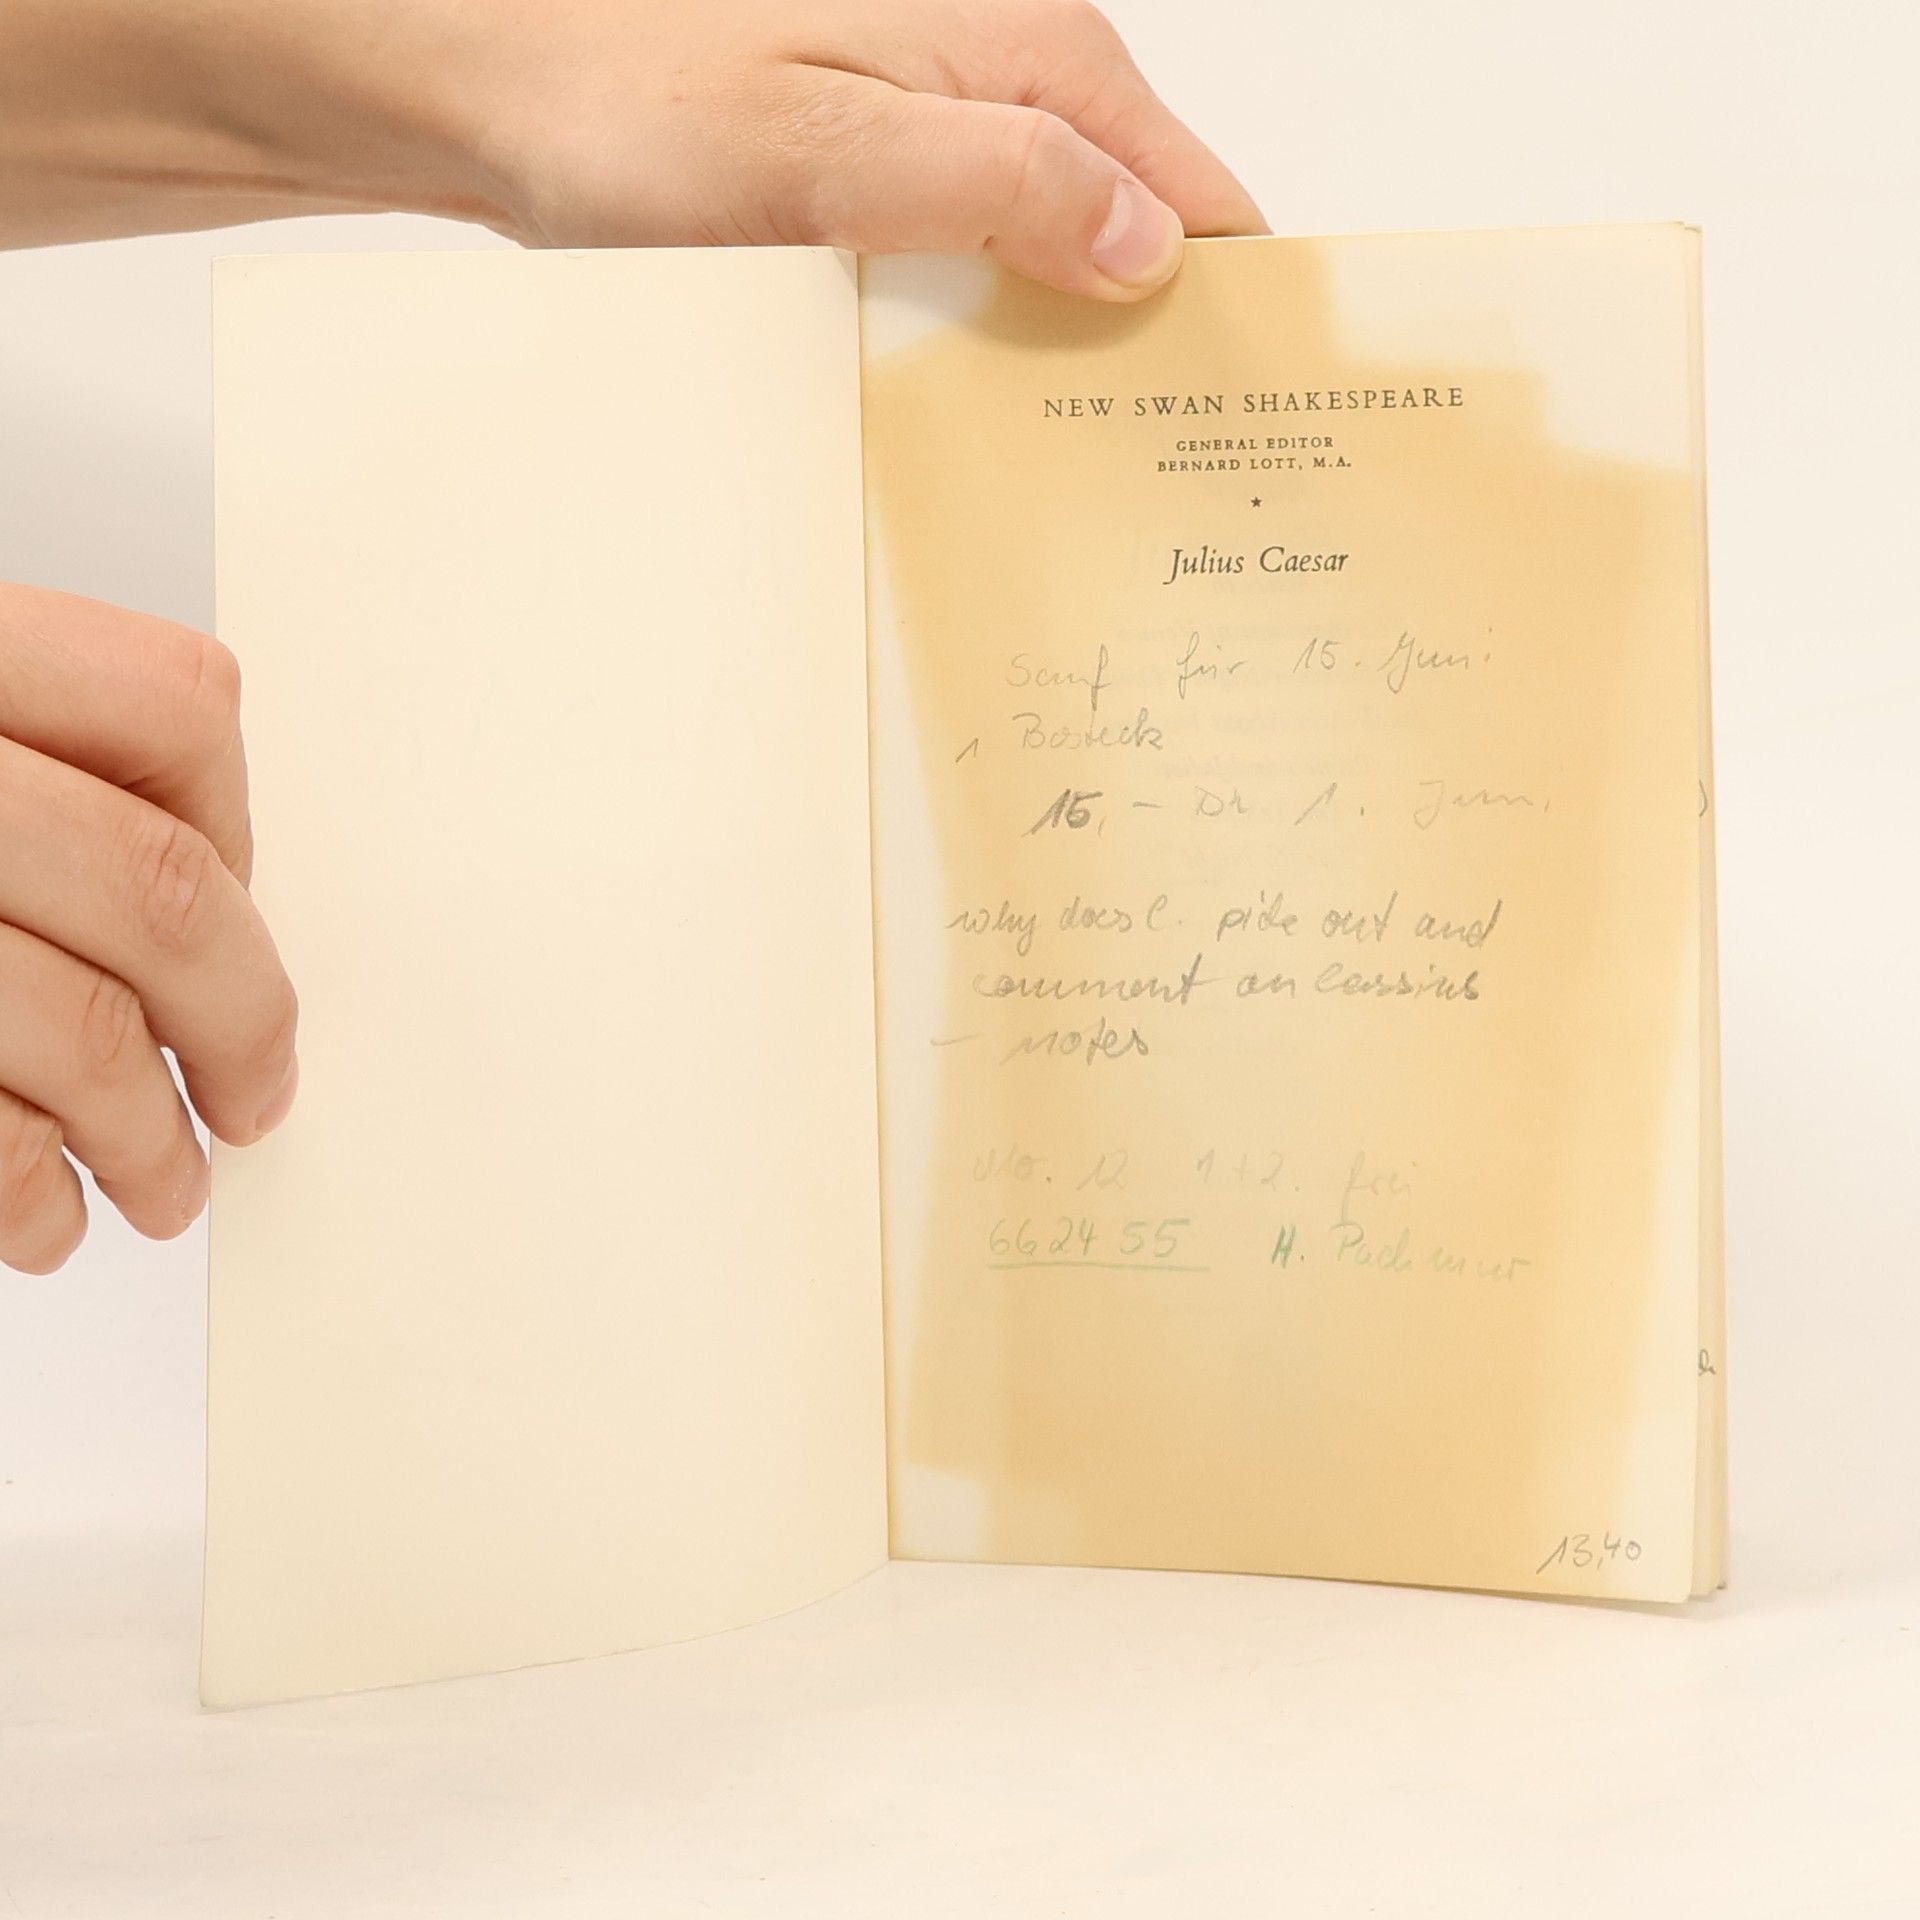 NEW SWAN SHAKESPEARE
GENERAL EDITOR
BERNARD LOTT, M.A.
★
Julius Caesar
Senf für 15. Juni
1 Besteck
15,- Dr 1. Juni
why does C. pick out and
comment on Cassius
- notes
Mo. 12 1+2. frei
66 24 55 H.
13,40